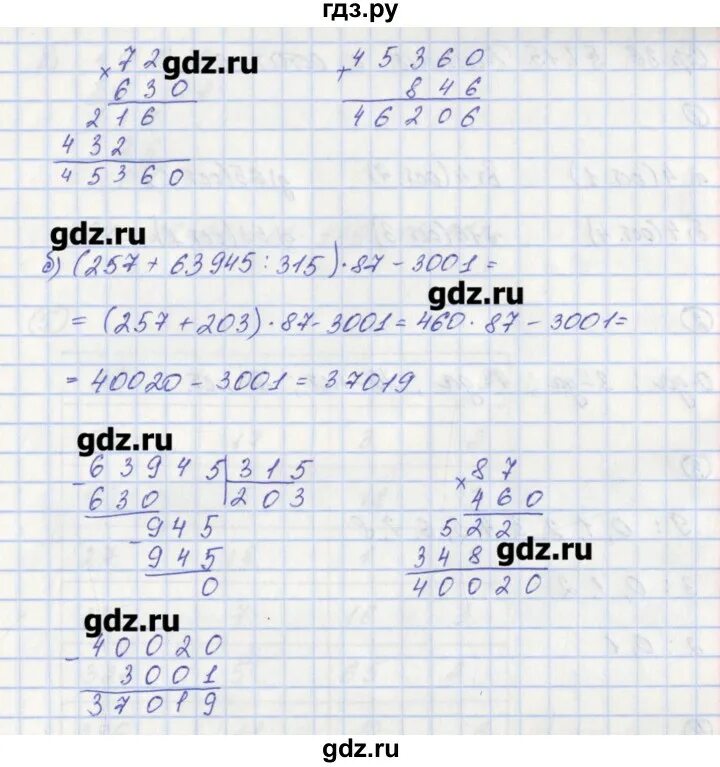 гдз.ру
× 72
630
216
432
45360
gdz.ru
+ 45360
846
46206
gdz.ru
б) (257 + 63945 : 315) · 87 - 3001 =
gdz.ru
= (257 + 203) · 87 - 3001 = 460 · 87 - 3001 =
= 40020 - 3001 = 37019
gdz.ru
- 63945 | 315
630 203
- 945
945
0
× 87
460
522
348
gdz.ru
40020
gdz.ru
- 40020
3001
37019
gdz.ru